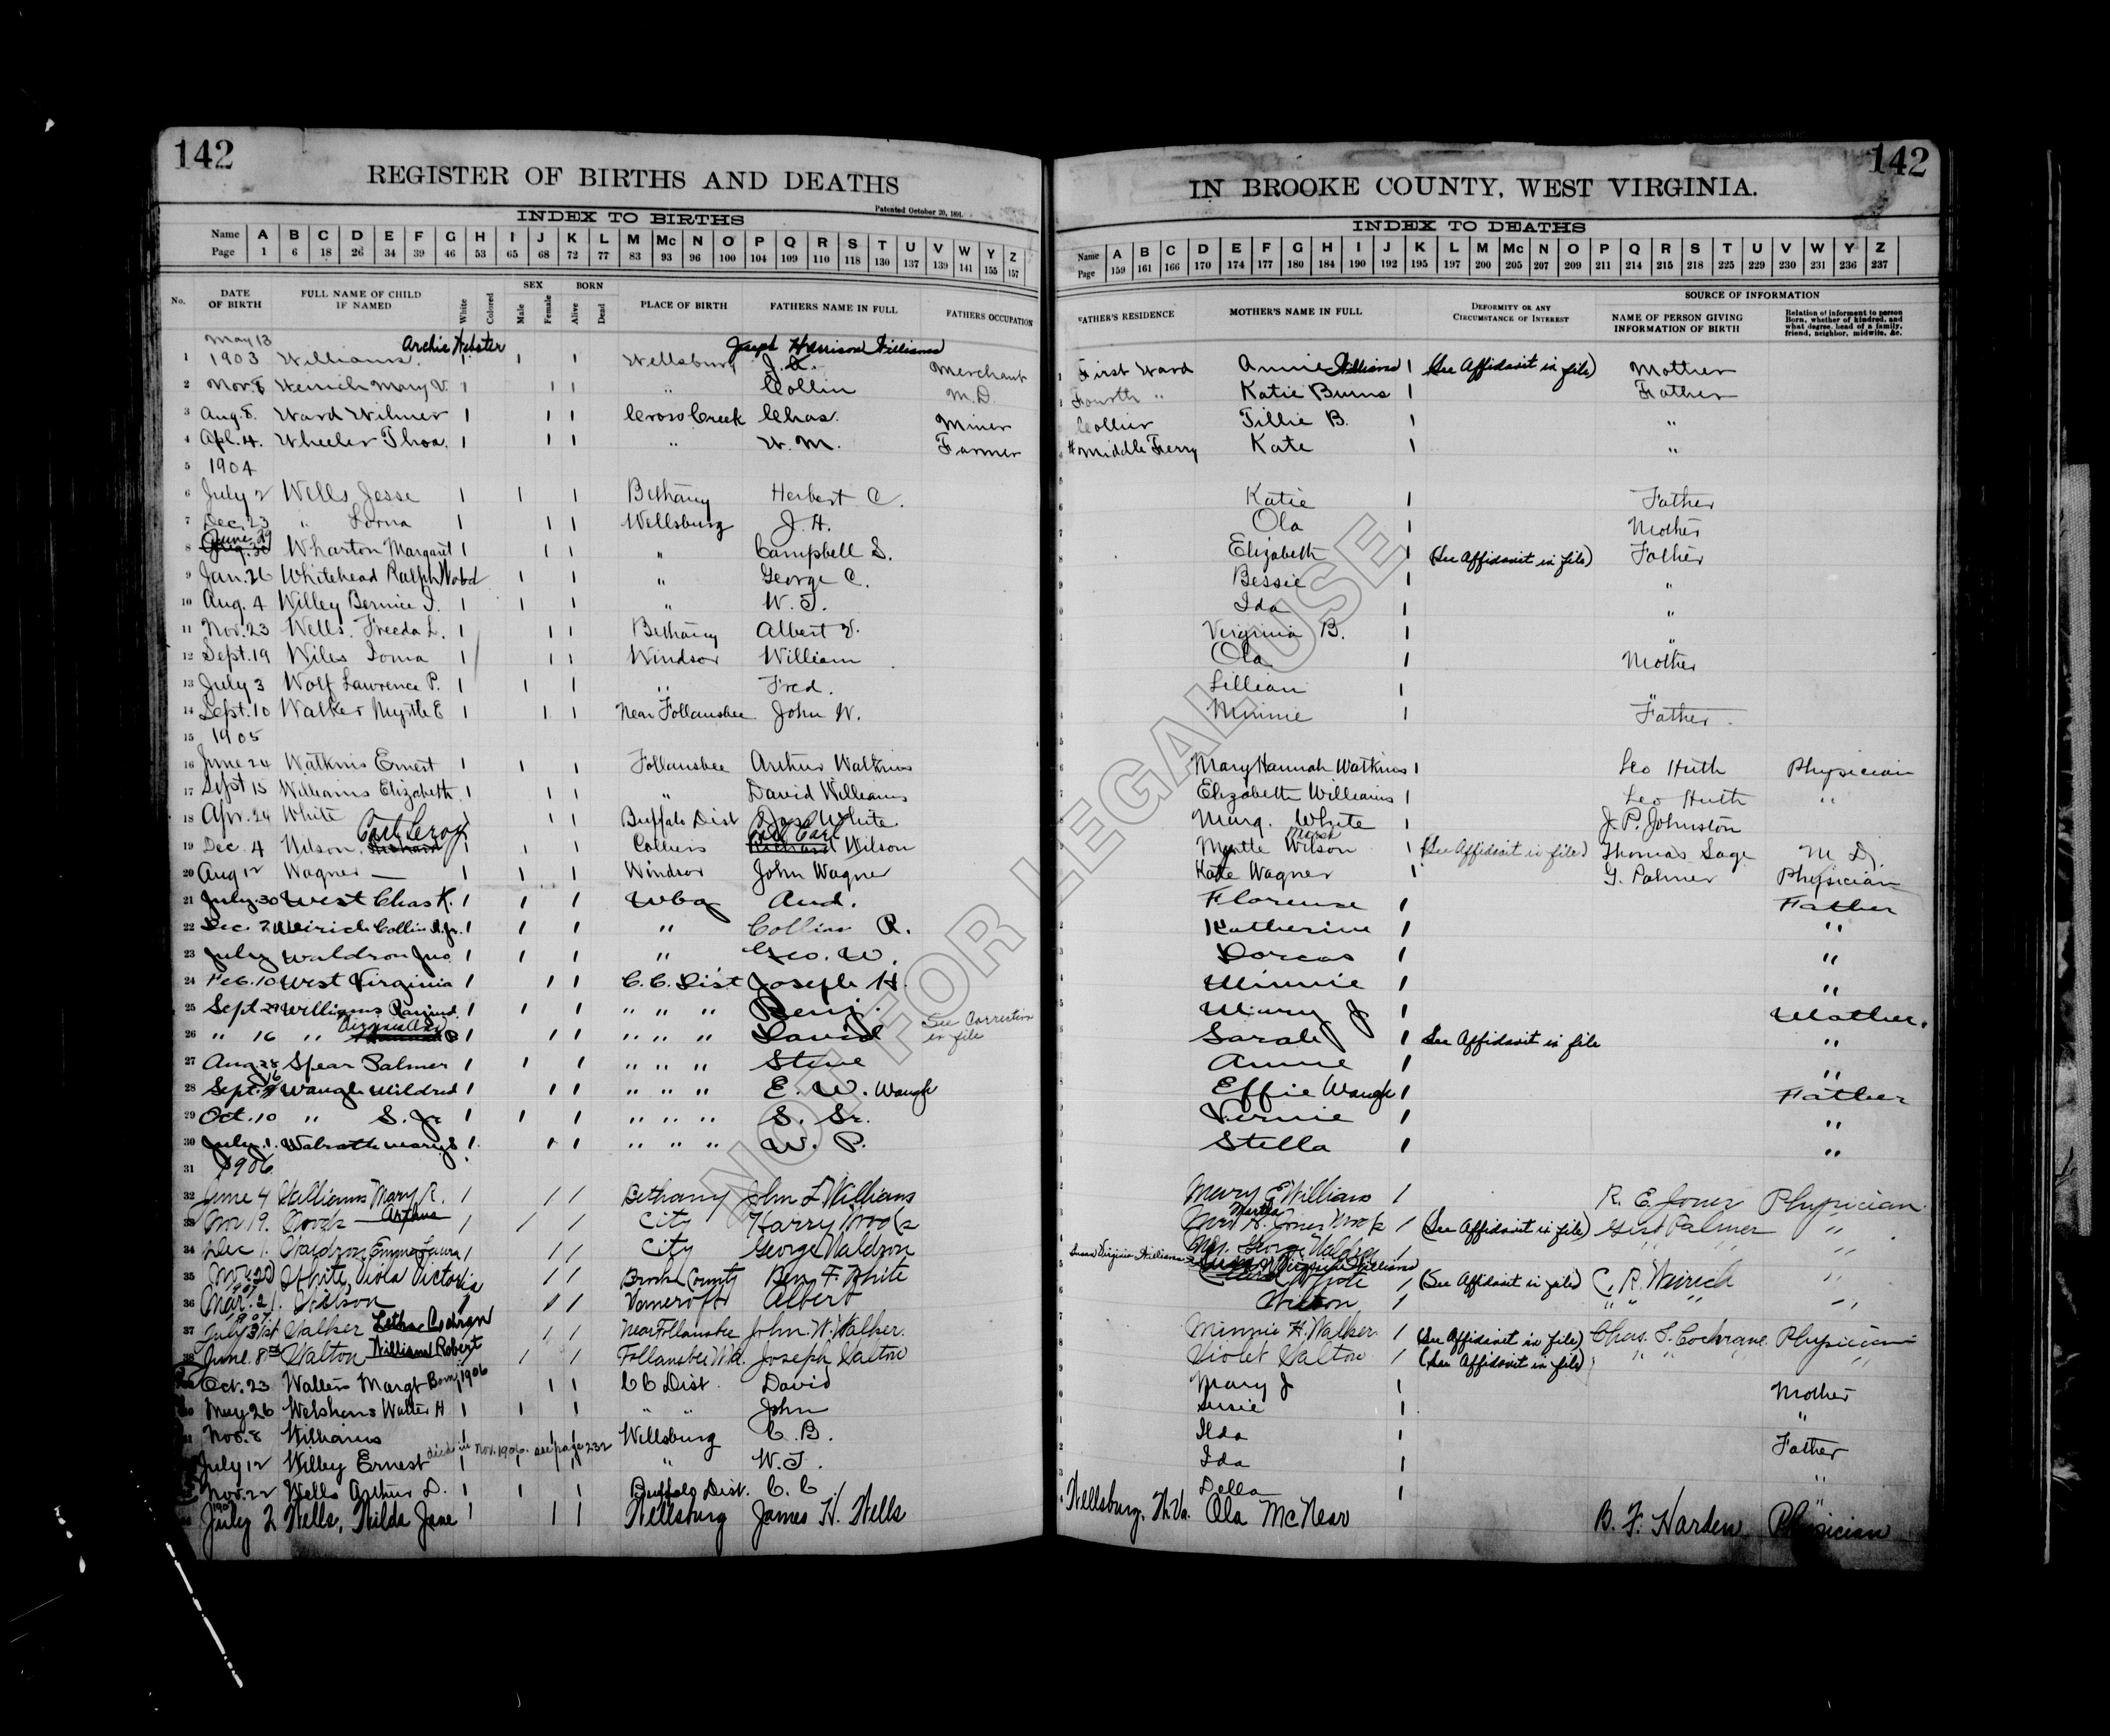 142
REGISTER OF BIRTHS AND DEATHS
Patented October 20, 1891.
INDEX TO BIRTHS
Name A B C D E F G H I J K L M Mc N O P Q R S T U V W Y Z
Page 1 6 18 26 34 39 46 53 65 68 72 77 83 93 96 100 104 109 110 118 130 137 139 141 155 157
No. DATE OF BIRTH FULL NAME OF CHILD IF NAMED White Colored SEX Male Female BORN Alive Dead PLACE OF BIRTH FATHERS NAME IN FULL FATHERS OCCUPATION
142
IN BROOKE COUNTY, WEST VIRGINIA.
INDEX TO DEATHS
Name A B C D E F G H I J K L M Mc N O P Q R S T U V W Y Z
Page 159 161 166 170 174 177 180 184 190 192 195 197 200 205 207 209 211 214 215 218 225 229 230 231 236 237
FATHER'S RESIDENCE MOTHER'S NAME IN FULL DEFORMITY OR ANY CIRCUMSTANCE OF INTEREST SOURCE OF INFORMATION NAME OF PERSON GIVING INFORMATION OF BIRTH Relation of informent to person Born, whether of kindred, and what degree, head of a family, friend, neighbor, midwife, &c.
May 13 Archie Webster Joseph Harrison Williams
1 1903 Williams. 1 1 1 Wellsburg J. Merchant First Ward Annie Williams 1 (See Affidavit in file) Mother
2 Nov. 8 Weirich Mary V. 1 1 1 " Collin M.D. Fourth " Katie Burns 1 Father
3 Aug. 8. Ward Wilmer 1 1 1 Cross Creek Chas. Miner Collier Tillie B. 1 "
4 Apl. 4. Wheeler Thos. 1 1 1 " W. M. Farmer Middle Ferry Kate 1 "
5 1904
6 July 2 Wells Jesse 1 1 1 Bethany Herbert C. Katie 1 Father
7 Dec. 23 " Lorna 1 1 1 Wellsburg J. H. Ola 1 Mother
8 June 29 Wharton Margaret 1 1 1 " Campbell S. Elizabeth 1 (See Affidavit in file) Father
9 Jan. 26 Whitehead Ralph Wood 1 1 " George C. Bessie 1 "
10 Aug. 4 Willey Bernice I. 1 1 1 " W. T. Ida 1 "
11 Nov. 23 Wells. Freeda L. 1 1 1 Bethany Albert V. Virginia B. 1 "
12 Sept. 19 Wiles Ioma 1 1 1 Windsor William Ola 1 Mother
13 July 3 Wolf Lawrence P. 1 1 1 " Fred. Lillian 1 "
14 Sept. 10 Walker Myrtle E 1 1 1 Near Follansbee John W. Minnie 1 Father
15 1905
16 June 24 Watkins Ernest 1 1 1 Follansbee Arthur Watkins Mary Hannah Watkins 1 Leo Huth Physician
17 Sept 15 Williams Elizabeth 1 1 1 " David Williams Elizabeth Williams 1 Leo Huth "
18 Apr. 24 White 1 1 Buffalo Dist Jas. White Marg. White 1 J. P. Johnston
Carl Leroy Carl Marsh
19 Dec. 4 Wilson, 1 1 1 Colliers Wilson Myrtle Wilson 1 (See Affidavit in file) Thomas Sage M D.
20 Aug 12 Wagner — 1 1 1 Windsor John Wagner Kate Wagner 1 G. Palmer Physician
21 July 30 West Chas K. 1 1 1 Wbg And. Florence 1 Father
22 Dec. 2 Weirich Collin R. Jr. 1 1 1 " Collin R. Katherine 1 "
23 July Waldron Jno. 1 1 1 " Geo. W. Dorcas 1 "
24 Feb. 10 West Virginia 1 1 1 C. C. Dist Joseph H. Minnie 1 "
25 Sept 29 Williams 1 1 1 " " " Benj. See Correction in file Mary J 1 Mother.
26 " 16 " 1 1 1 " " " David Sarah 1 See Affidavit in file "
27 Aug. 28 Spear Palmer 1 1 1 " " " Steve Annie 1 "
28 Sept. 16 Waugh Mildred 1 1 1 " " " E. W. Waugh Effie Waugh 1 Father
29 Oct. 10 " S. Jr. 1 1 1 " " " S. Sr. Vernie 1 "
30 July. 1. Walrath Mary S 1. 1 1 " " " W. P. Stella 1 "
31 1906
32 June 4 Williams Mary R. 1 1 1 Bethany John L Williams Mary E Williams 1 R. E. Jones Physician
33 Nov 19. Arthur 1 1 1 City Harry Martha Jones 1 (See Affidavit in file) Gist Palmer "
34 Dec 1. Waldron Emma Laura 1 1 1 City George Waldron Mrs. George Waldron 1 " " "
35 Nov. 20 White Viola Victoria 1 1 Brooke County Ben F. White Susan Virginia Williams White 1 (See Affidavit in file) C. R. Weirich "
36 1907 Mar. 21. Wilson 1 1 1 Albert Wilson 1 " " " "
37 1907 July 31st Walker Letha Cochran 1 1 Near Follansbee John. W. Walker. Minnie H. Walker. 1 (See Affidavit in file) Chas. S. Cochrane. Physician
38 June. 8th Walton William Robert 1 1 Follansbee W.Va. Joseph Walton Violet Walton 1 (See Affidavit in file) " " " "
Oct. 23 Walters Margt Born 1906 1 1 C C Dist. David Mary J 1 Mother
40 May 26 Welshans Walter H 1 1 1 " " John Susie 1 "
Nov. 8 Williams 1 1 1 Wellsburg C. B. Ilda 1 Father
July 12 Willey Ernest died in Nov. 1906. see page 232 1 " W. T. Ida 1 "
Nov. 22 Wells Arthur D. 1 1 1 Buffalo Dist. C. C. Della 1 "
July 2 Wells, Wilda Jane 1 1 1 Wellsburg James H. Wells Wellsburg, W. Va. Ola McNear B. F. Harden Physician
NOT FOR LEGAL USE